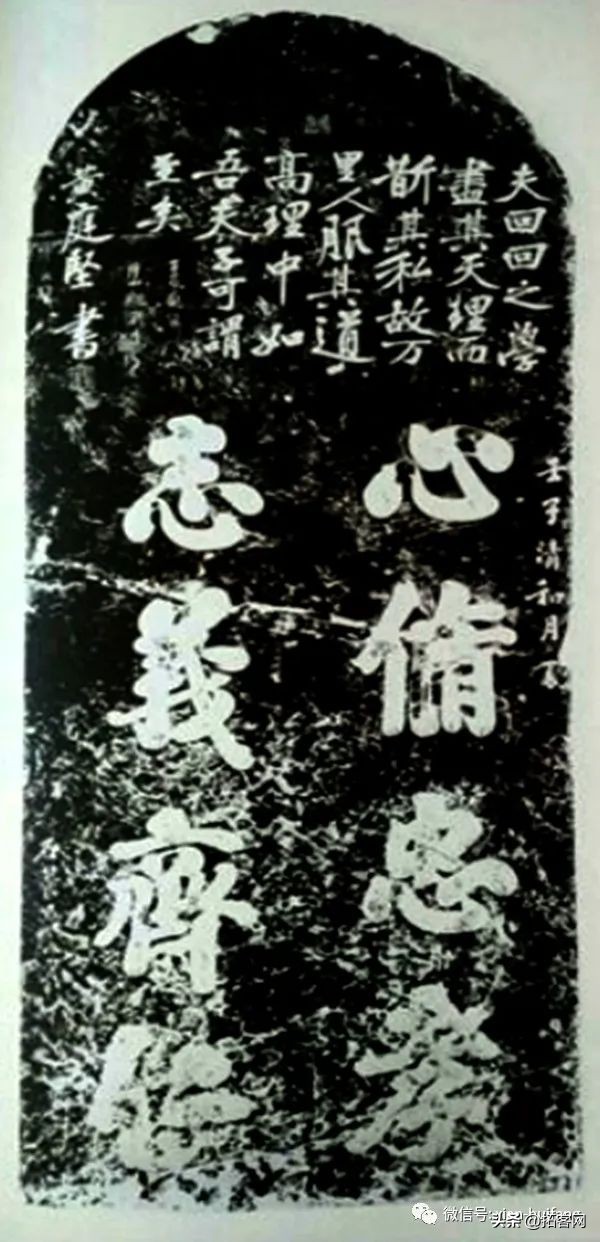 夫回回之學
盡其天理而
斷其私故万
里人服其道
高理中如
吾夫子可謂
至矣
黃庭堅書
壬子清和月
心脩忠孝
志義齊
微信号:
头条 @拓客网